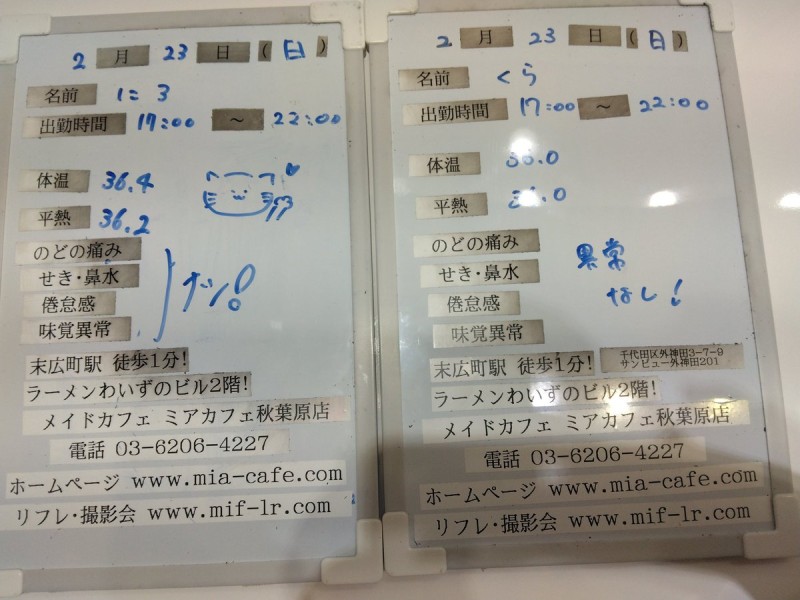 2 月 23 日 (日)
名前 にろ
出勤時間 17:00 ～ 22:00
体温 36.4
平熱 36.2
のどの痛み
せき・鼻水
倦怠感
味覚異常
ナシ!
末広町駅 徒歩1分!
ラーメンわいずのビル2階!
メイドカフェ ミアカフェ秋葉原店
電話 03-6206-4227
ホームページ www.mia-cafe.com
リフレ・撮影会 www.mif-lr.com
2 月 23 日 (日)
名前 くら
出勤時間 17:00 ～ 22:00
体温 36.0
平熱
のどの痛み
せき・鼻水
倦怠感
味覚異常
異常
なし!
末広町駅 徒歩1分!
千代田区外神田3-7-9
サンビュー外神田201
ラーメンわいずのビル2階!
メイドカフェ ミアカフェ秋葉原店
電話 03-6206-4227
ホームページ www.mia-cafe.com
リフレ・撮影会 www.mif-lr.com